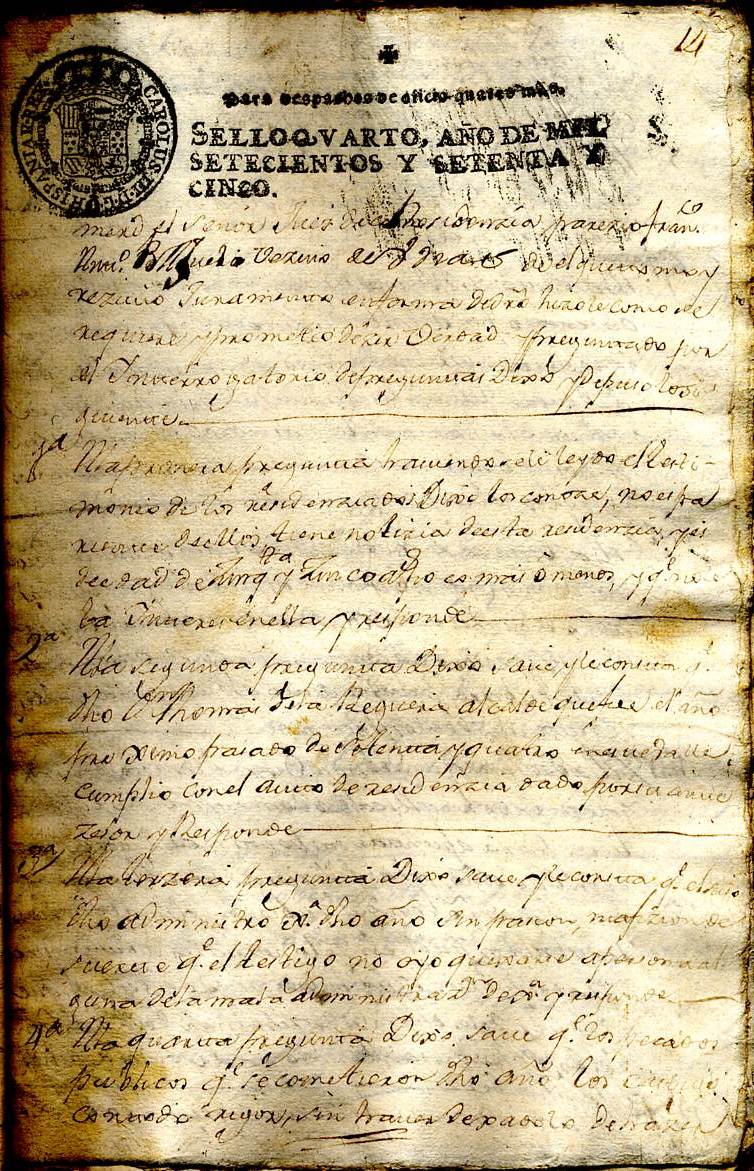 14
CAROLUS III D.G. HISPANIAR. REX
Para despachos de oficio quatro mrs.
SELLO QVARTO, AÑO DE MIL
SETECIENTOS Y SETENTA Y
CINCO.
merd el señor Juez de Residenzia, parezio fran.co
vezino de del que su md
rezivio Juramento en forma de dro hizole como se
requiere y prometio dezir Verdad y preguntado por
el Interrogatorio de preguntas Dixo y depuso lo si
guiente
1a
A la primera pregunta haviendosele leydo el testi-
monio de los residenziados Dixo los conoze, no es pa
riente de ellos, tiene notizia de esta residenzia, y es
de edad de Zinq.ta y Zinco años mas o menos, y q.e no le
ba Interes en ella, y responde
2a
A la segunda pregunta Dixo save, y le consta q.e
dho Dn Thomas de la Reguera alcalde que fue el año
proximo pasado de setenta y quatro en que
cumplio con el auto de residenzia dado por su ante
zesor y Responde
3a
A la terzera pregunta Dixo save y le consta q.e el
dho administró dho año sin pasion, ni afizion de
suerte q.e el testigo no oyo quejarse a persona al
guna de la mala administraz.n de y responde
4a
A la quarta pregunta Dixo save q.e los pecados
publicos q.e se cometieron dho año los castigó
con todo rigor, sin haver dexado de